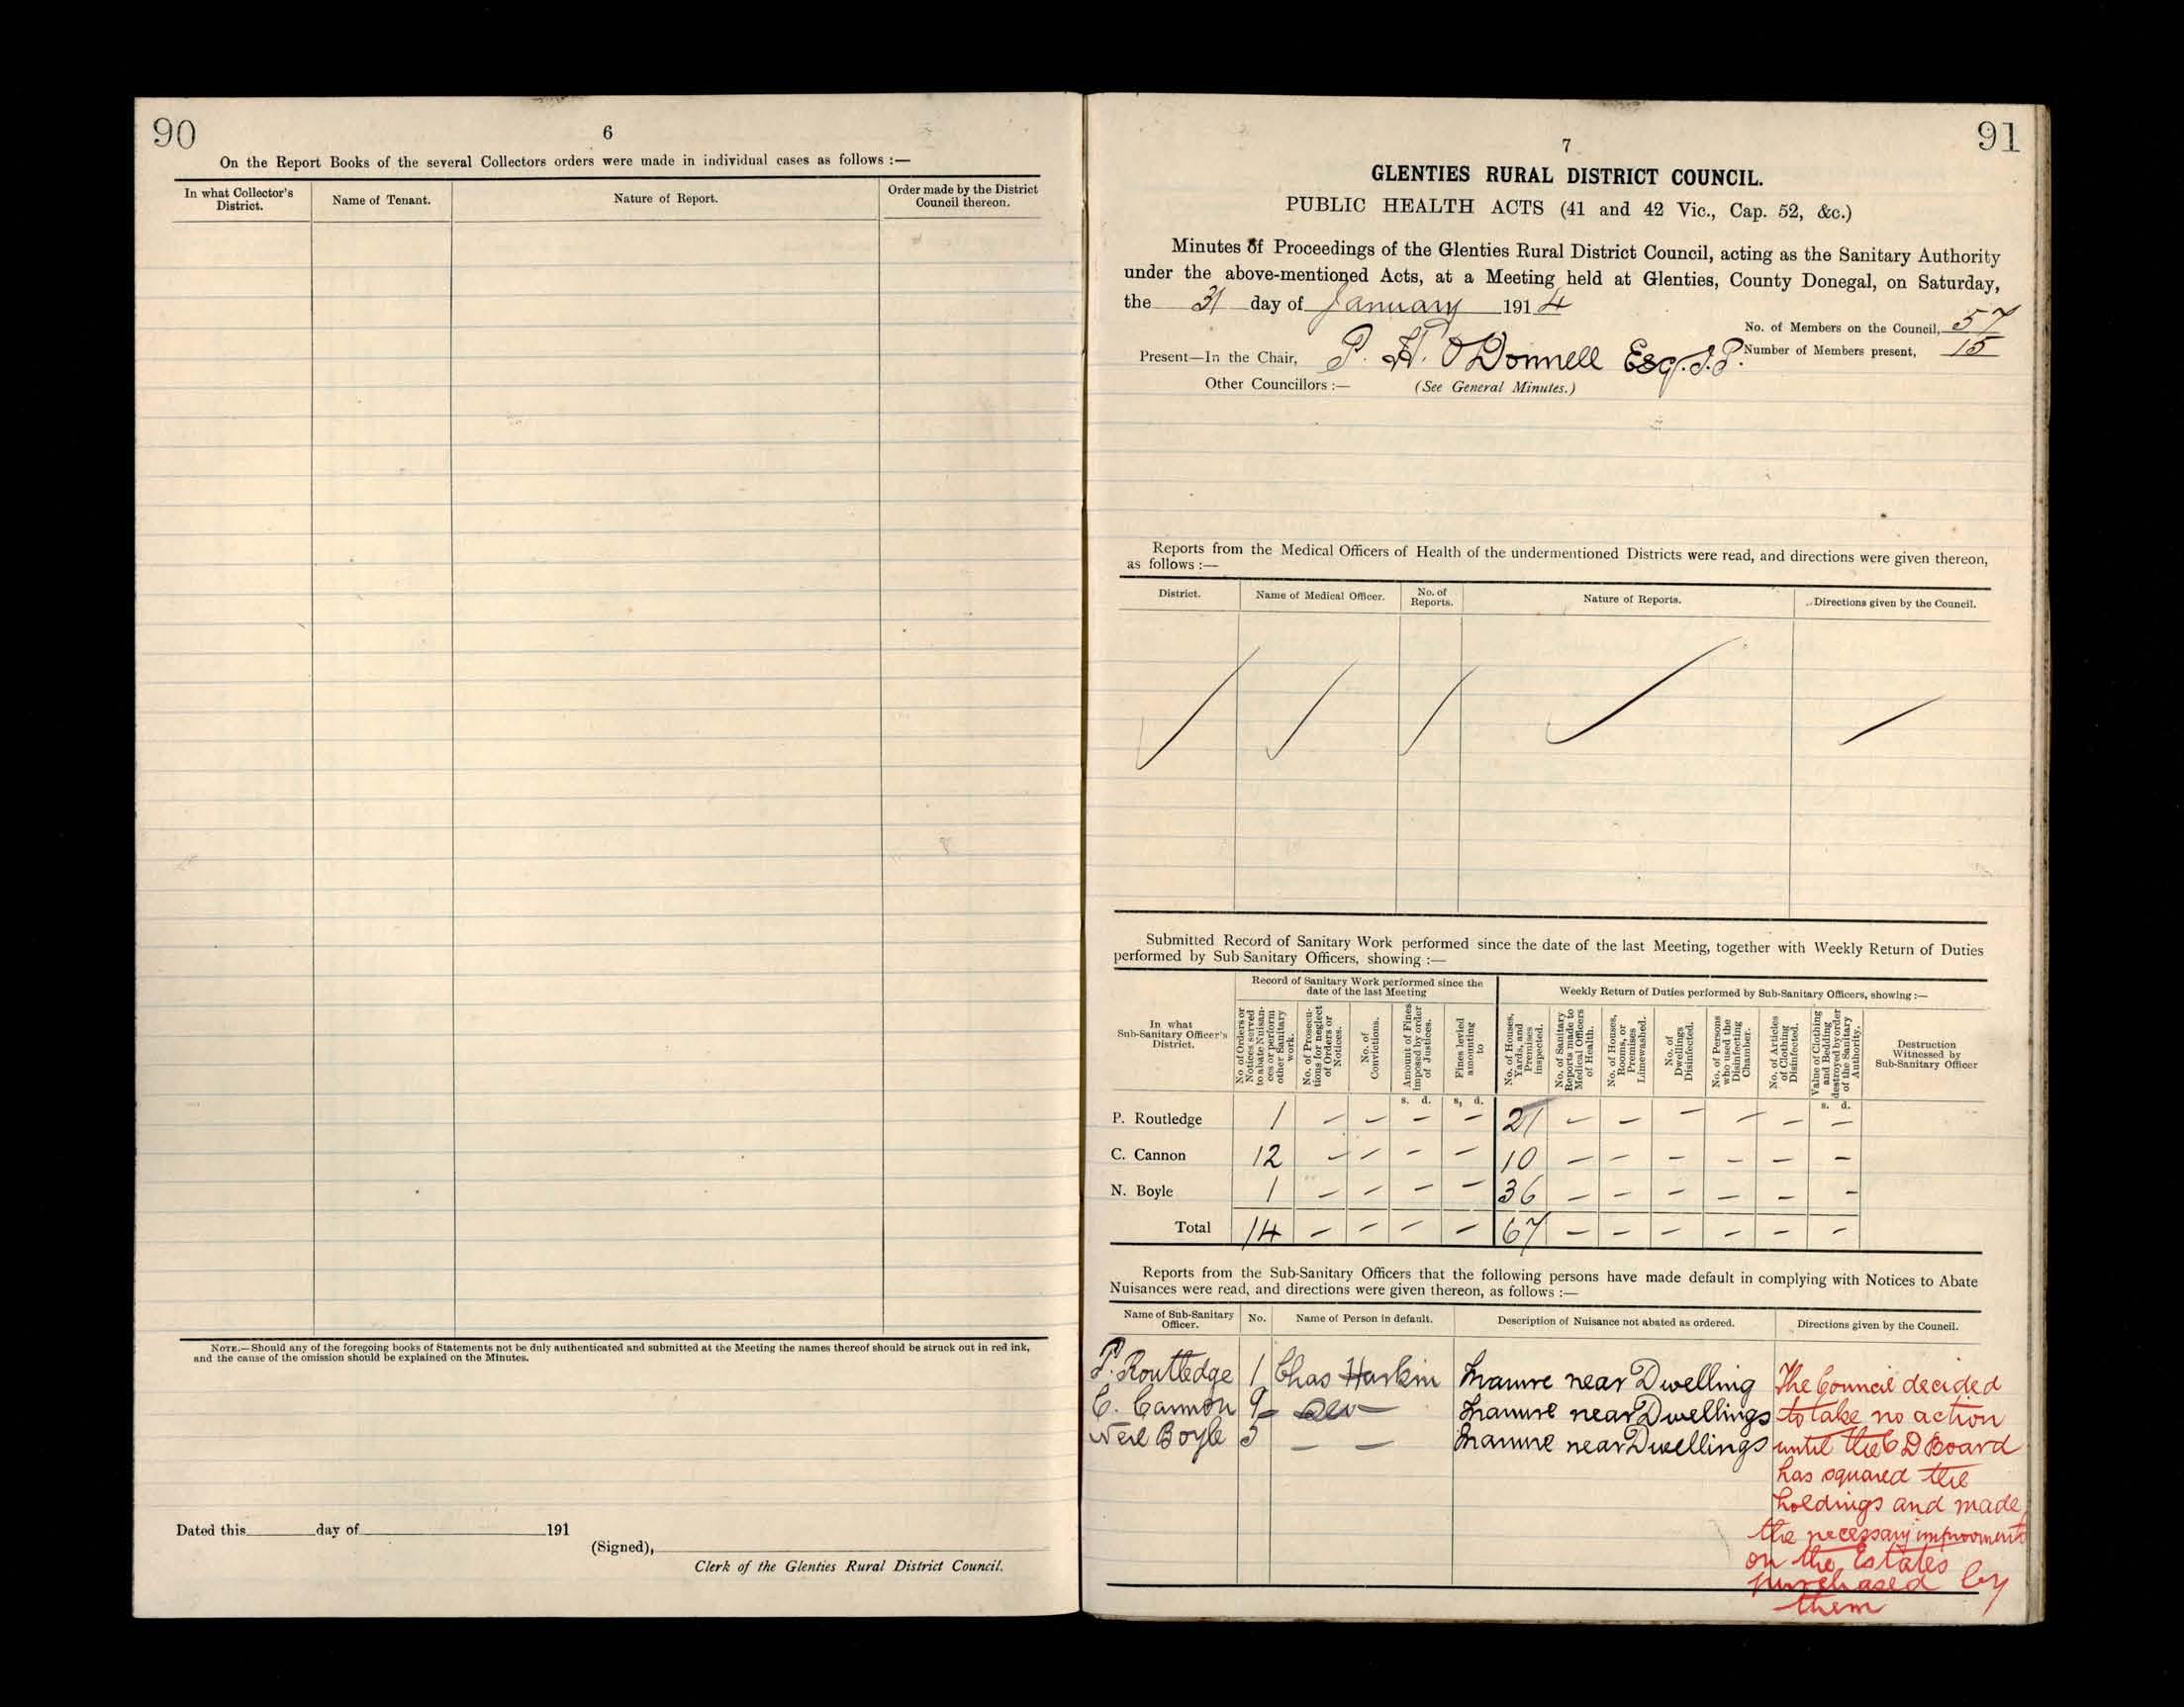 90
6
On the Report Books of the several Collectors orders were made in individual cases as follows :—
In what Collector's District.
Name of Tenant.
Nature of Report.
Order made by the District Council thereon.
NOTE.—Should any of the foregoing books of Statements not be duly authenticated and submitted at the Meeting the names thereof should be struck out in red ink,
and the cause of the omission should be explained on the Minutes.
Dated this day of 191
(Signed),
Clerk of the Glenties Rural District Council.
91
7
GLENTIES RURAL DISTRICT COUNCIL.
PUBLIC HEALTH ACTS (41 and 42 Vic., Cap. 52, &c.)
Minutes of Proceedings of the Glenties Rural District Council, acting as the Sanitary Authority
under the above-mentioned Acts, at a Meeting held at Glenties, County Donegal, on Saturday,
the 31 day of January 1914
No. of Members on the Council, 57
Present—In the Chair, P. H. O'Donnell Esq. J.P. Number of Members present, 15
Other Councillors :— (See General Minutes.)
Reports from the Medical Officers of Health of the undermentioned Districts were read, and directions were given thereon,
as follows :—
District.
Name of Medical Officer.
No. of Reports.
Nature of Reports.
Directions given by the Council.
Submitted Record of Sanitary Work performed since the date of the last Meeting, together with Weekly Return of Duties
performed by Sub Sanitary Officers, showing :—
In what Sub-Sanitary Officer's District.
Record of Sanitary Work performed since the date of the last Meeting
Weekly Return of Duties performed by Sub-Sanitary Officers, showing :—
No of Orders or Notices served to abate Nuisances or perform other Sanitary work.
No. of Prosecutions for neglect of Orders or Notices.
No. of Convictions.
Amount of Fines imposed by order of Justices.
Fines levied amounting to
No. of Houses, Yards, and Premises inspected.
No. of Sanitary Reports made to Medical Officers of Health.
No. of Houses, Rooms, or Premises Limewashed.
No. of Dwellings Disinfected.
No. of Persons who used the Disinfecting Chamber.
No. of Articles of Clothing Disinfected.
Value of Clothing and Bedding destroyed by order of the Sanitary Authority.
Destruction Witnessed by Sub-Sanitary Officer
s. d. s, d. s. d.
P. Routledge 1 — — — — 21 — — — — — —
C. Cannon 12 — — — — 10 — — — — — —
N. Boyle 1 — — — — 36 — — — — — —
Total 14 — — — — 67 — — — — — —
Reports from the Sub-Sanitary Officers that the following persons have made default in complying with Notices to Abate
Nuisances were read, and directions were given thereon, as follows :—
Name of Sub-Sanitary Officer.
No.
Name of Person in default.
Description of Nuisance not abated as ordered.
Directions given by the Council.
P. Routledge 1 Chas Harkin Manure near Dwelling The Council decided
C. Cannon 9 — Manure near Dwellings to take no action
Neil Boyle 5 — — Manure near Dwellings until the C D Board
has squared the
holdings and made
the necessary improvements
on the Estates
purchased by
them